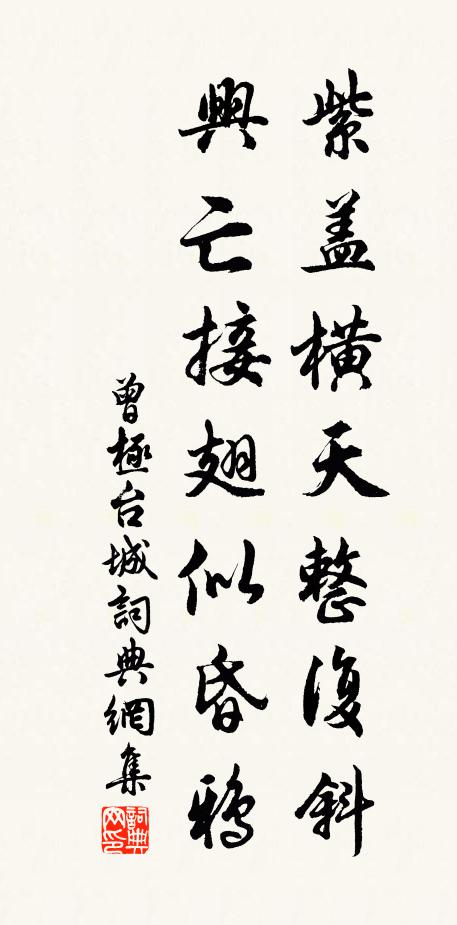 紫盖橫天整復斜
興亡接翅似昏鴉
曾極台城詞典網集
詞典网印